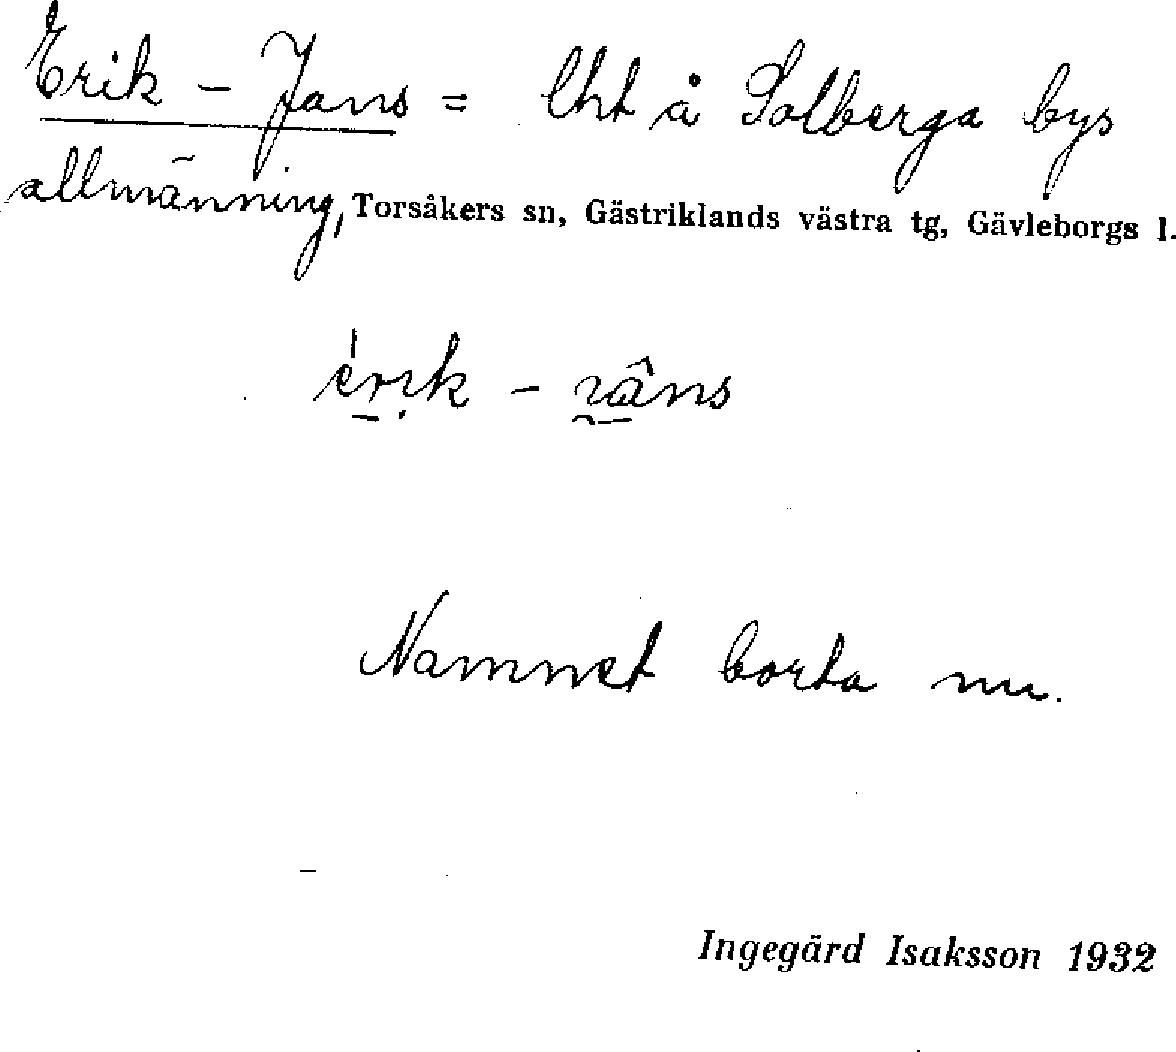 Erik-Jans = lht å Solberga bys
allmänning, Torsåkers sn, Gästriklands västra tg, Gävleborgs l.
Namnet borta nu.
Ingegärd Isaksson 1932